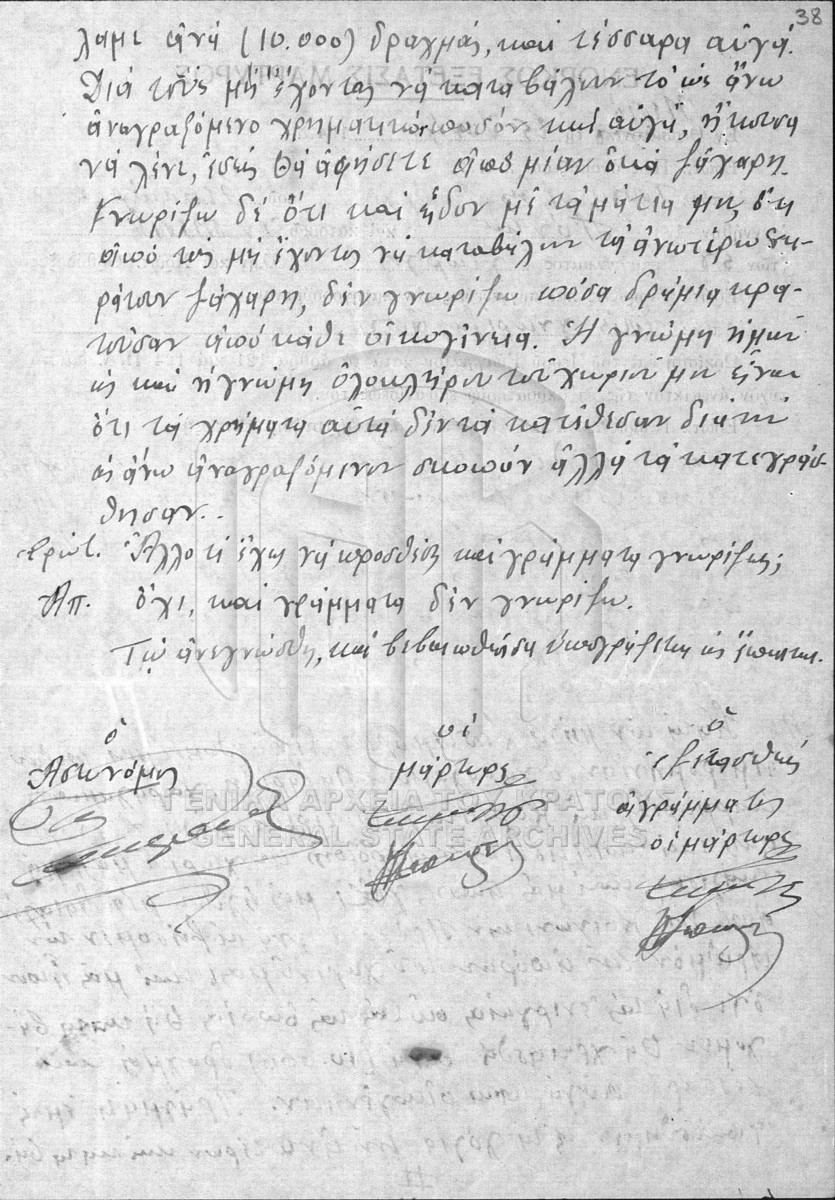 38
λαμε ἀνὰ (10.000) δραχμάς, καὶ τέσσαρα αὐγά.
Διὰ τοὺς μὴ ἔχοντας νὰ καταβάλουν τὸ ὡς ἄνω
ἀναγραφόμενο χρηματικὸν ποσὸν καὶ αὐγά, ἤκουσα
νὰ λένε, ἐσεῖς θὰ ἀφήσετε ἀπὸ μίαν ὀκᾶ ζάχαρη.
Γνωρίζω δὲ ὅτι καὶ εἶδον μὲ τὰ μάτια μου ὅτι
ἀπὸ τοὺς μὴ ἔχοντας νὰ καταβάλουν τὰ ἀνωτέρω
ράτουν ζάχαρη, δὲν γνωρίζω πόσα δράμια κρα-
τοῦσαν ἀπὸ κάθε οἰκογένεια. Ἡ γνώμη
ὡς καὶ ἡ γνώμη ὁλοκλήρου τοῦ χωριοῦ μου εἶναι
ὅτι τὰ χρήματα αὐτὰ δὲν τὰ κατέθεσαν διὰ τὸν
ὡς ἄνω ἀναγραφόμενον σκοπὸν ἀλλὰ τὰ κατεχράσ-
θησαν..
Ἐρώτ. Ἄλλο τί ἔχεις νὰ προσθέσῃς καὶ γράμματα γνωρίζεις;
Ἀπ. ὄχι, καὶ γράμματα δὲν γνωρίζω.
ἀνεγνώσθη, καὶ βεβαιωθεῖσα ὑπογράφεται ὡς ἕπεται.
ὁ
Ἀστυνόμος
οἱ
μάρτυρες
ὁ
ἐξετασθεὶς
ἀγράμματος
οἱ μάρτυρες
ΓΕΝΙΚΑ ΑΡΧΕΙΑ ΤΟΥ ΚΡΑΤΟΥΣ
GENERAL STATE ARCHIVES